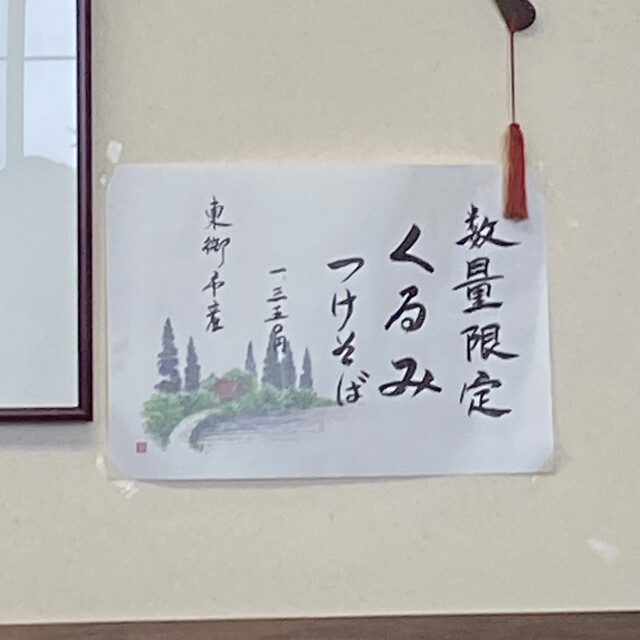 数量限定
くるみ
つけそば
一、三五〇円
東御市産